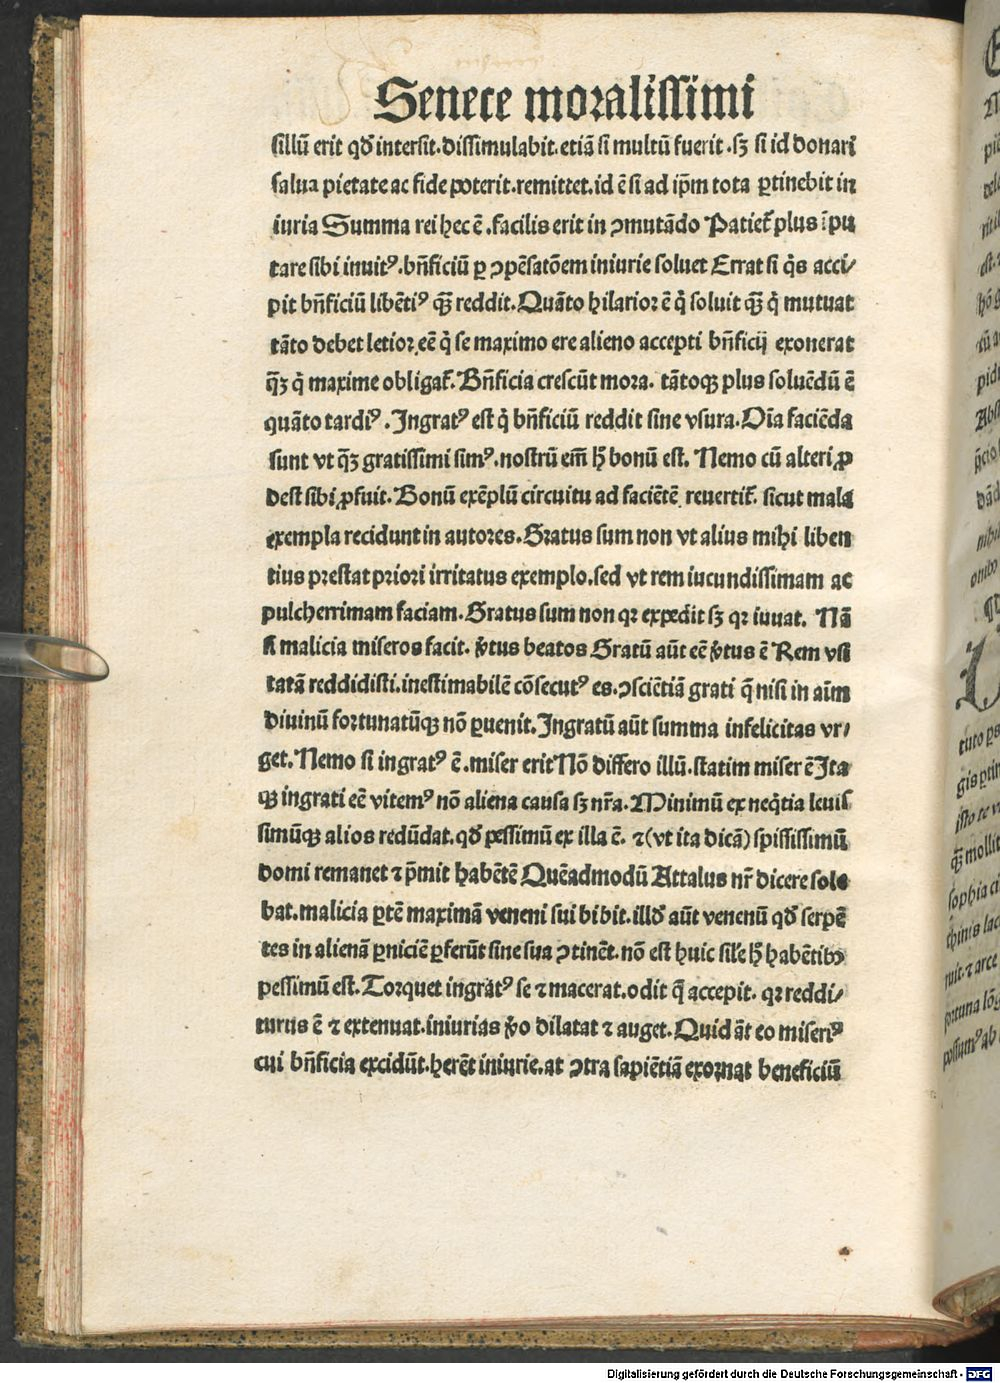 Senece moralissimi
sillū erit qđ intersit.dissimulabit.etiā si multū fuerit.sʒ si id donari
salua pietate ac fide poterit.remittet.id ē si ad ip̄m tota ꝑtinebit in
iuria Summa rei hec ē.facilis erit in ↄmutādo Patiet̄ plus īpu
tare sibi inuitꝰ.bn̄ficiū ꝑ ↄpēsatōem iniurie soluet Errat si q̇s acci/
pit bn̄ficiū libētiꝰ qꝫ̄ reddit.Quāto hilarioꝛ ē q̇ soluit qꝫ̄ q̇ mutuat
tāto debet letioꝛ eē q̇ se maximo ere alieno accepti bn̄ficij exonerat
qꝫ̄ q̇ maxime obligat̄.Bn̄ficia crescūt mora. tātoqꝫ plus soluēdū ē
quāto tardiꝰ.Ingratꝰ est q̇ bn̄ficiū reddit sine vsura.Oīa faciēda
sunt vt qꝫ̄ gratissimi simꝰ.nostrū em̄ h̄ bonū est. Nemo cū alteri ꝓ
dest sibi ꝓfuit.Bonū exēplū circuitu ad faciētē reuertit̄. sicut mala
exempla recidunt in autoꝛes.Gratus sum non vt alius mihi liben
tius prestat prioꝛi irritatus exemplo.sed vt rem iucundissimam ac
pulcherrimam faciam.Gratus sum non qꝛ expedit sʒ qꝛ iuuat. Nā
si malicia miseros facit. v̓tus beatos Gratū aūt eē v̓tus ē Rem vsi
tatā reddidisti.inestimabilē cōsecutꝰ es.ↄsciētiā grati q̄ nisi in aīm
diuinū foꝛtunatūqꝫ nō ꝑuenit.Ingratū aūt summa infelicitas vr/
get.Nemo si ingratꝰ ē.miser erit Nō differo illū.statim miser ē Ita
qꝫ ingrati eē vitemꝰ nō aliena causa sʒ nr̄a.Minimū ex neq̇tia leuis
simūqꝫ alios redūdat.qđ pessimū ex illa ē. ⁊(vt ita dicā) spississimū
domi remanet ⁊ p̄mit habētē Quēadmodū Attalus nr̄ dicere sole
bat.malicia ꝑtē maximā veneni sui bibit.illđ aūt venenū qđ serpē
tes in alienā ꝑniciē ꝑferūt sine sua ↄtinēt.nō est huic sil̄e h̄ habētibꝰ
pessimū est.Toꝛquet ingratꝰ se ⁊ macerat.odit q̄ accepit. qꝛ reddi/
turus ē ⁊ extenuat.iniurias v̓o dilatat ⁊ auget.Quid āt eo miseriꝰ
cui bn̄ficia excidūt.herēt iniurie.at ↄtra sapiētiā exoꝛnat beneficiū
Digitalisierung gefördert durch die Deutsche Forschungsgemeinschaft - DFG